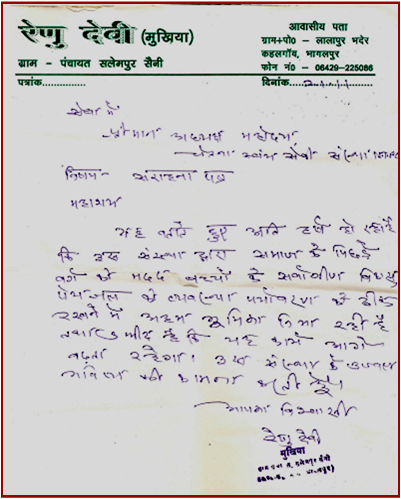 रेणु देवी (मुखिया)
ग्राम - पंचायत सलेमपुर सैनी
आवासीय पता
ग्राम+पो० - लालापुर भदेर
कहलगाँव, भागलपुर
फोन नं० - 06429-225086
पत्रांक..............
दिनांक
सेवा में
श्रीमान अध्यक्ष महोदय
चेतना स्वयं सेवी संस्था
विषय- सराहना पत्र
महाशय
यह कहते हुए अति हर्ष हो रहा है
कि उक्त संस्था द्वारा समाज के पिछड़े
वर्ग को मदद बच्चों के सर्वांगीण विकास
पेयजल की व्यवस्था पर्यावरण को ठीक
रखने में अहम भूमिका निभा रही है
तथा उम्मीद है कि यह कार्य आगे
बढ़ता रहेगा। उक्त संस्था के उज्जवल
भविष्य की कामना करती हूँ।
आपका विश्वासी
रेणु देवी
मुखिया